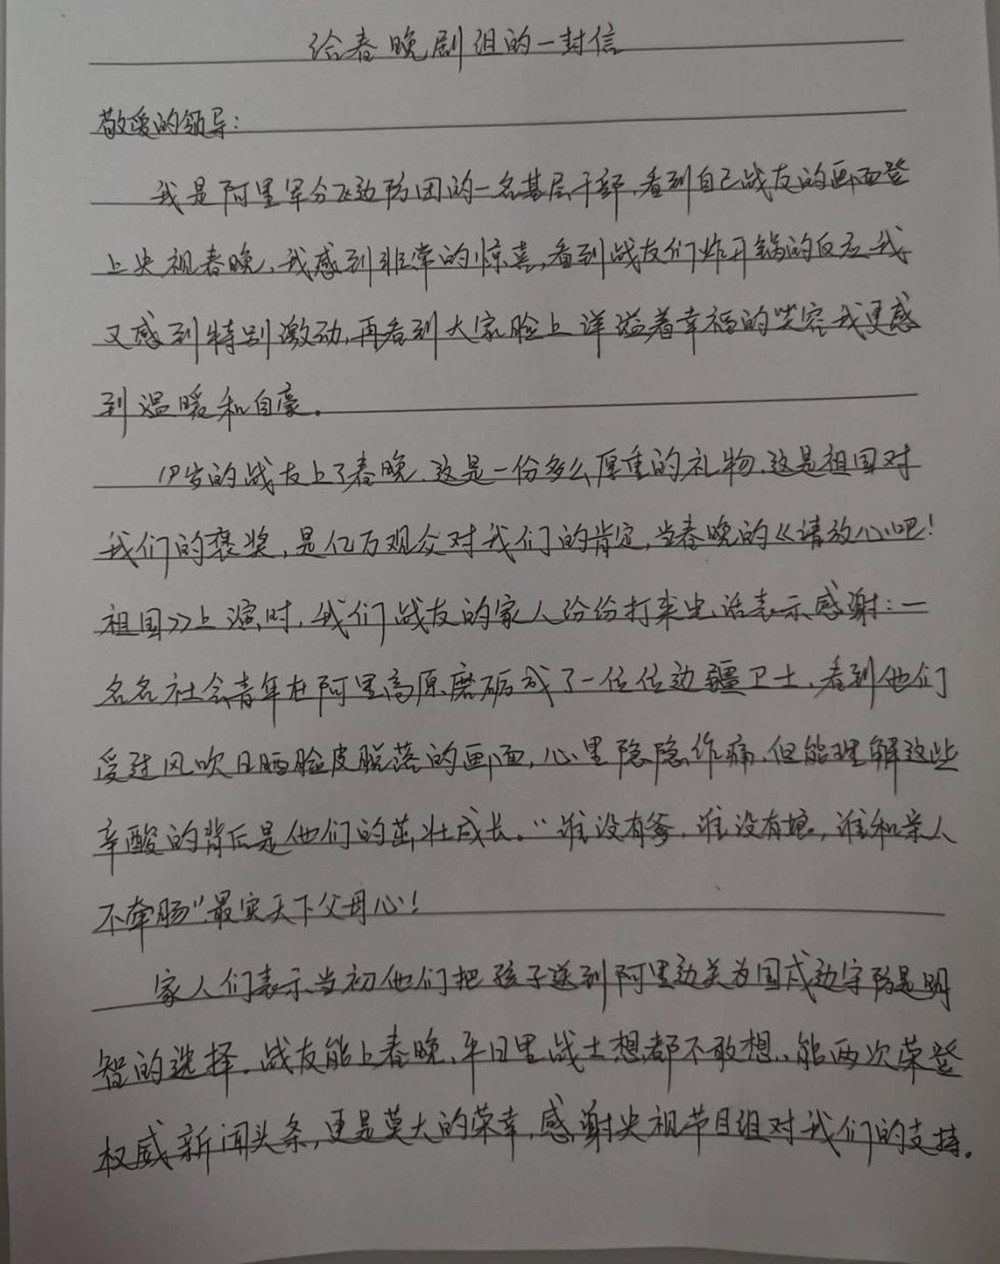 给春晚剧组的一封信
敬爱的领导:
我是阿里军分区边防团的一名基层干部,看到自己战友的画面登
上央视春晚,我感到非常的惊喜,看到战友们炸开锅的反应我
又感到特别激动,再看到大家脸上洋溢着幸福的笑容我更感
到温暖和自豪。
19岁的战友上了春晚,这是一份多么厚重的礼物,这是祖国对
我们的褒奖,是亿万观众对我们的肯定,当春晚的《请放心吧!
祖国》上演时,我们战友的家人纷纷打来电话表示感谢:一
名名社会青年在阿里高原磨砺成了一位位边疆卫士,看到他们
受过风吹日晒脸皮脱落的画面,心里隐隐作痛,但能理解这些
辛酸的背后是他们的茁壮成长。“谁没有爹,谁没有娘,谁和亲人
不牵肠”最实天下父母心!
家人们表示当初他们把孩子送到阿里边关为国戍边守防是明
智的选择。战友能上春晚,平日里战士想都不敢想,能两次荣登
权威新闻头条,更是莫大的荣幸,感谢央视节目组对我们的支持。